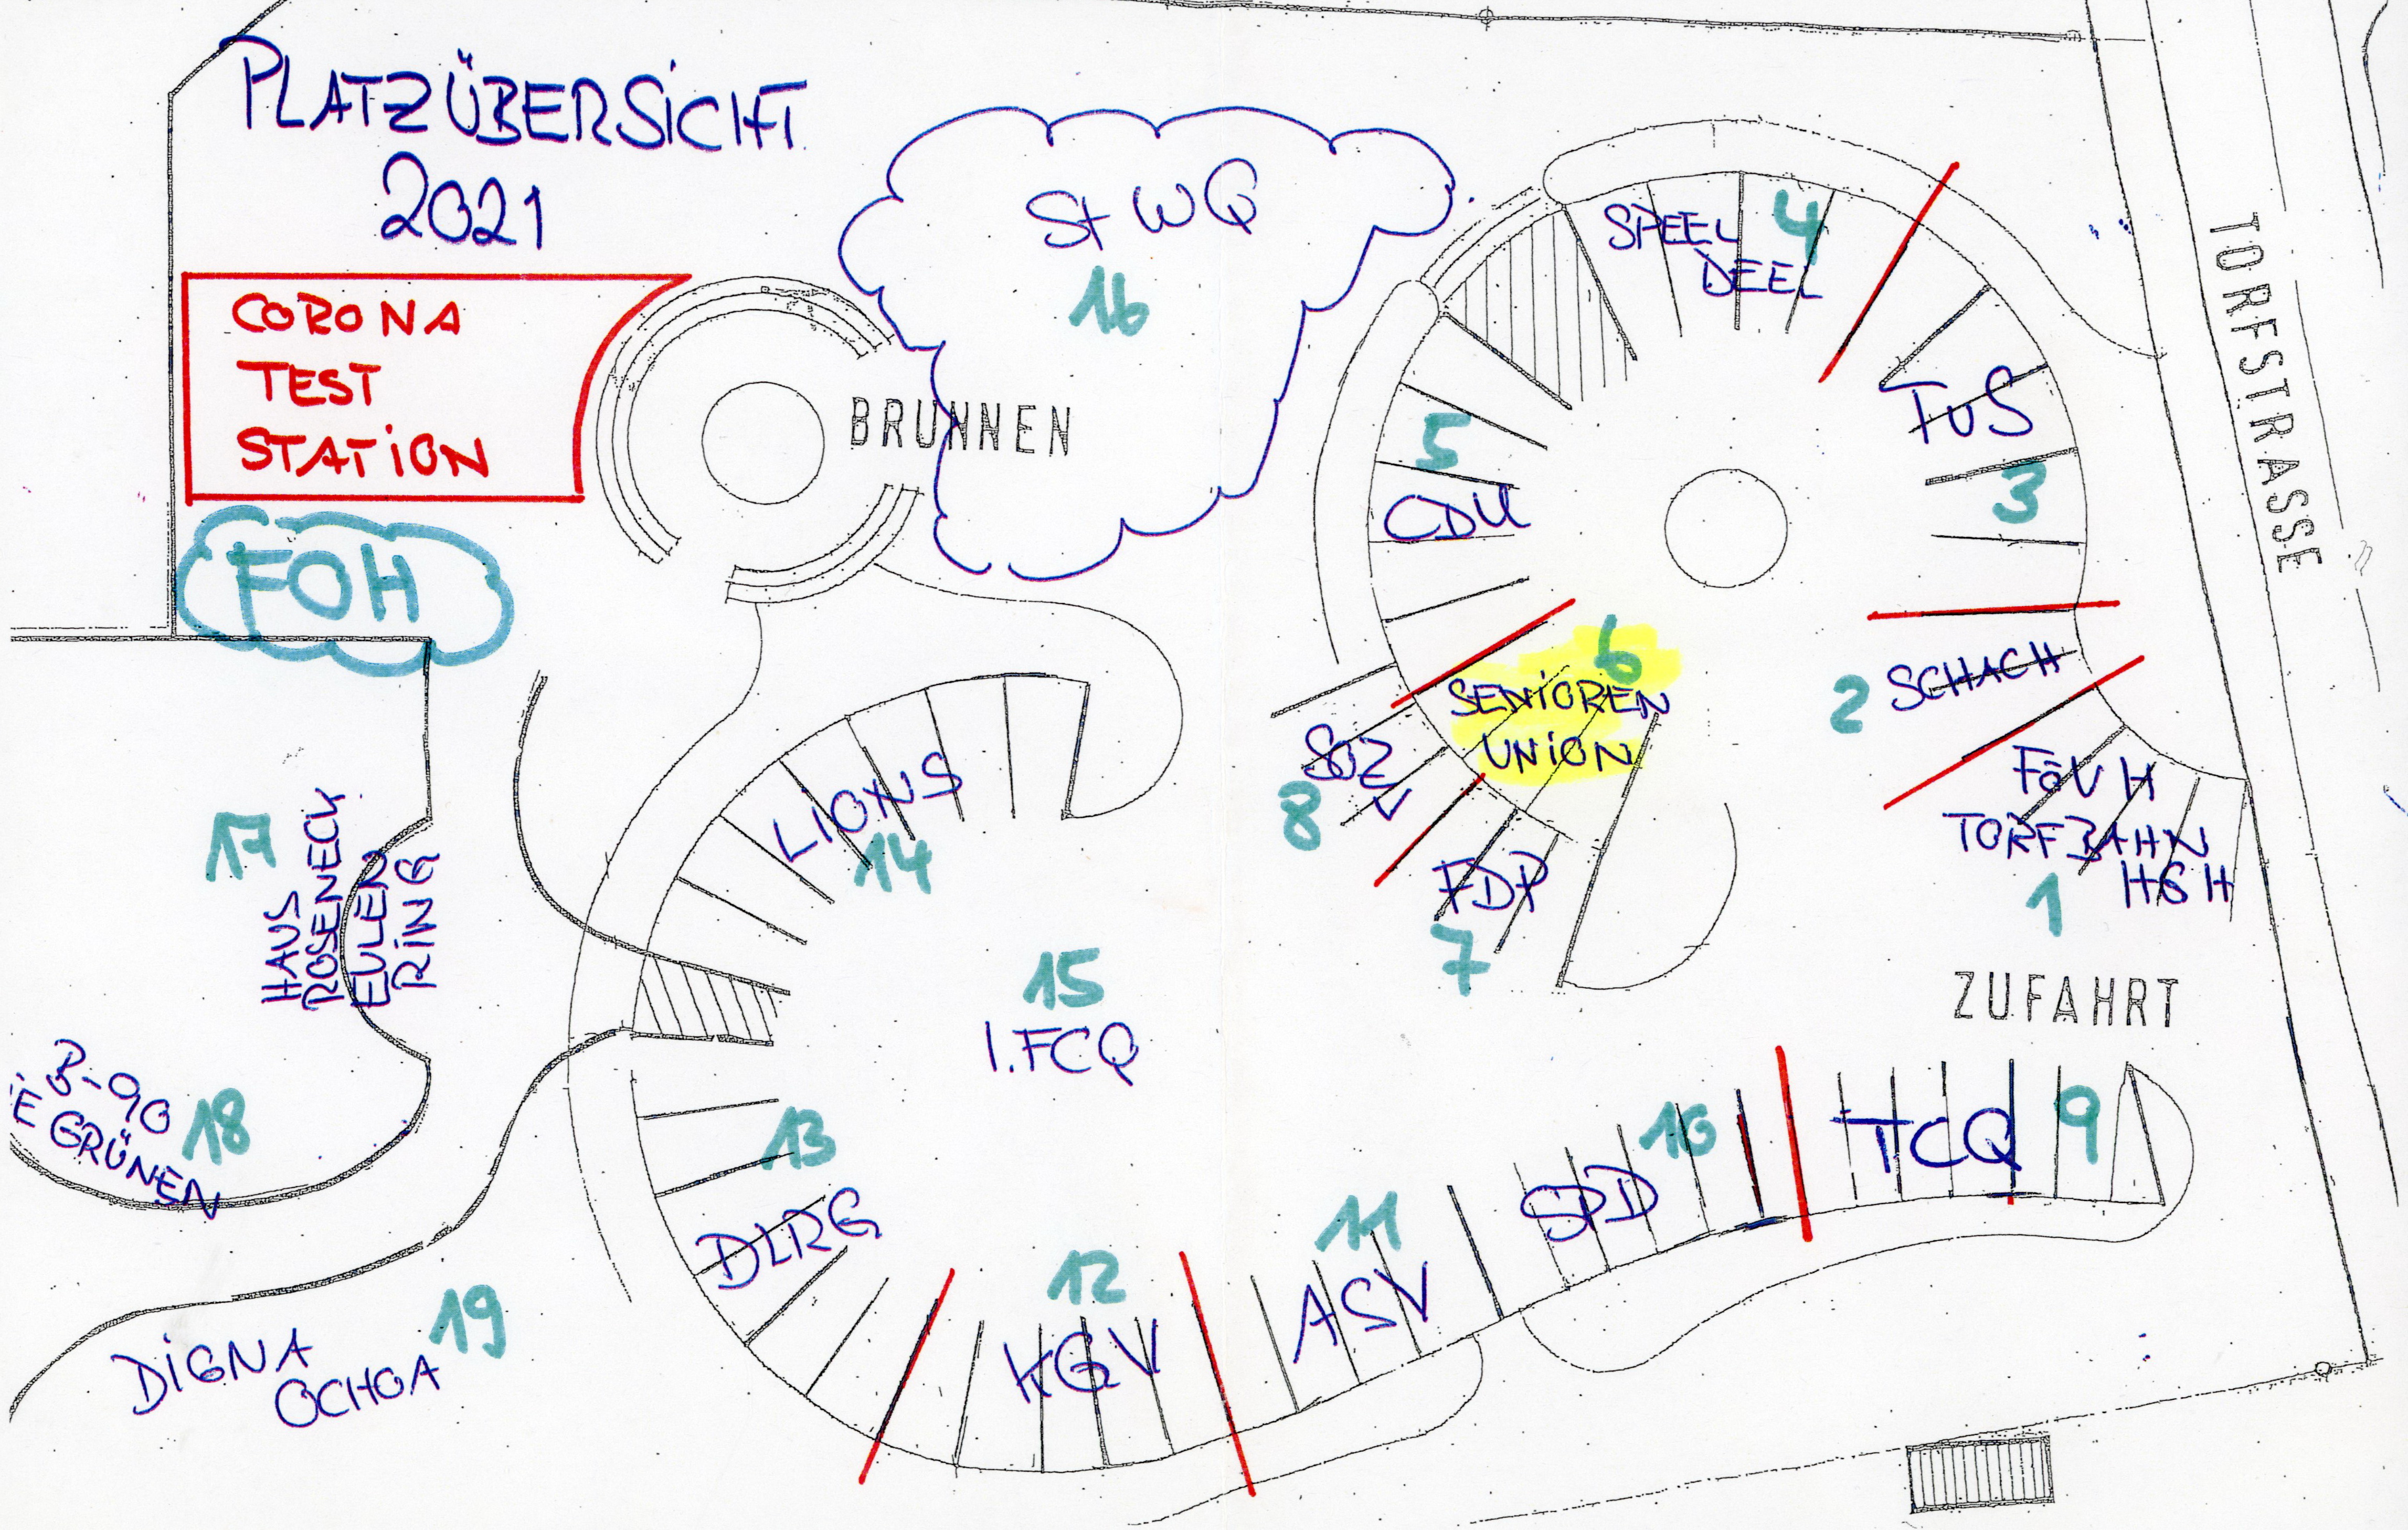 PLATZÜBERSICHT
2021
CORONA
TEST
STATION
FOH
BRUNNEN
St WQ
16
SPEEL
DEEL
4
TORFSTRASSE
TUS
3
5
CDU
6
SENIOREN
UNION
2
SCHACH
SOZ
V
8
FDP
7
FÖV H
TORFBAHN
HGH
1
ZUFAHRT
LIONS
14
15
1.FCQ
17
HAUS
ROSENECK
EULEN
RING
B-90
E GRÜNEN
18
13
DLRG
12
KGV
11
ASV
10
SPD
TCQ
9
19
DIGNA
OCHOA